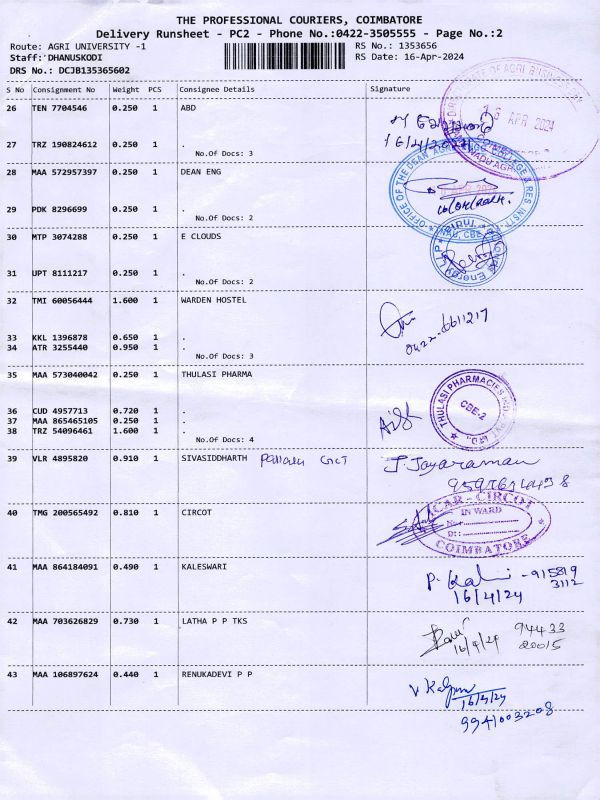 THE PROFESSIONAL COURIERS, COIMBATORE
Delivery Runsheet - PC2 - Phone No.:0422-3505555 - Page No.:2
Route: AGRI UNIVERSITY -1 RS No.: 1353656
Staff: DHANUSKODI RS Date: 16-Apr-2024
DRS No.: DCJB135365602
S No Consignment No Weight PCS Consignee Details Signature
26 TEN 7704546 0.250 1 ABD
16 APR 2024
27 TRZ 190824612 0.250 1 . 16/4/2024
No.Of Docs: 3
28 MAA 572957397 0.250 1 DEAN ENG
OFFICE OF THE DEAN
29 PDK 8296699 0.250 1 .
No.Of Docs: 2
30 MTP 3074288 0.250 1 E CLOUDS
31 UPT 8111217 0.250 1 .
No.Of Docs: 2
32 TMI 60056444 1.600 1 WARDEN HOSTEL
0422-6611217
33 KKL 1396878 0.650 1 .
34 ATR 3255440 0.950 1 .
No.Of Docs: 3
35 MAA 573040042 0.250 1 THULASI PHARMA
THULASI PHARMACIES IND
CBE-2
36 CUD 4957713 0.720 1 .
37 MAA 865465105 0.250 1 .
38 TRZ 54096461 1.600 1 .
No.Of Docs: 4
39 VLR 4895820 0.910 1 SIVASIDDHARTH J. Jayaraman
40 TMG 200565492 0.810 1 CIRCOT
ICAR - CIRCOT
IN WARD
No:
Dt:
COIMBATORE
41 MAA 864184091 0.490 1 KALESWARI P. Kali - 915819
3112
16/4/24
42 MAA 703626829 0.730 1 LATHA P P TKS 94433
20015
16/4/24
43 MAA 106897624 0.440 1 RENUKADEVI P P
16/4/24
9941003208